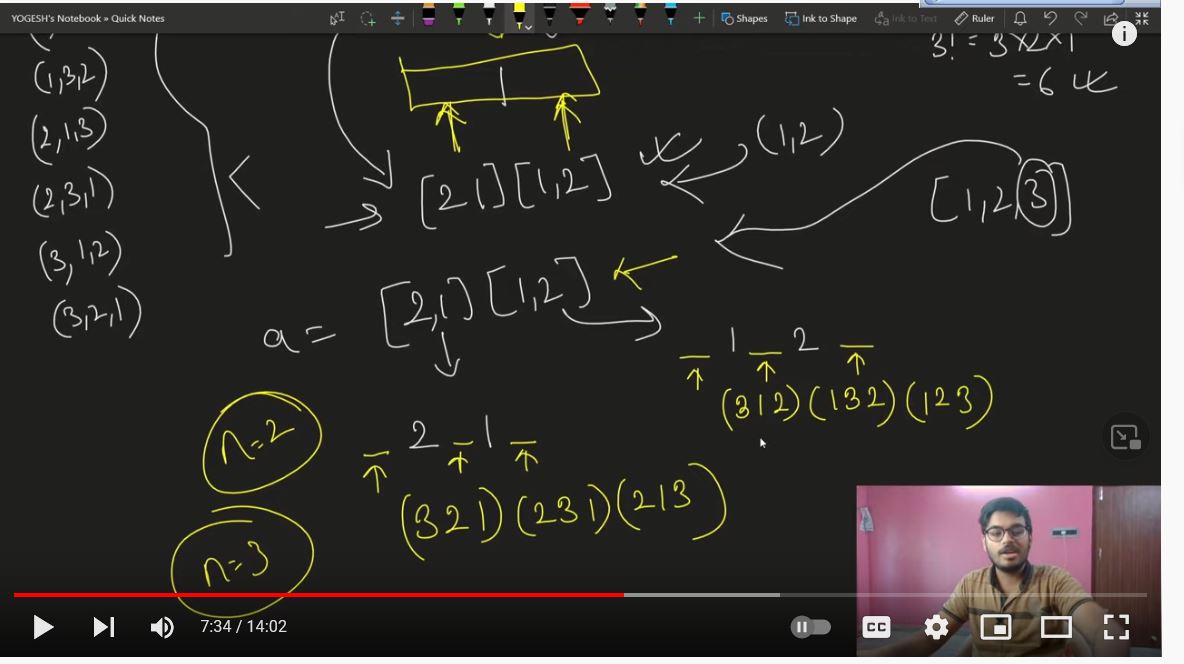 YOGESH's Notebook » Quick Notes
Shapes
Ink to Shape
Ink to Text
Ruler
i
3! = 3×2×1
= 6
(1,3,2)
(2,1,3)
(2,3,1)
(3,1,2)
(3,2,1)
[2 1] [1,2]
(1,2)
[1,2,3]
a = [2,1] [1,2]
1 2
(312) (132) (123)
n=2
2 1
(321) (231) (213)
n=3
7:34 / 14:02
CC